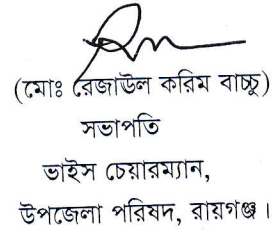 (মোঃ রেজাউল করিম বাচ্চু)
সভাপতি
ভাইস চেয়ারম্যান,
উপজেলা পরিষদ, রায়গঞ্জ।